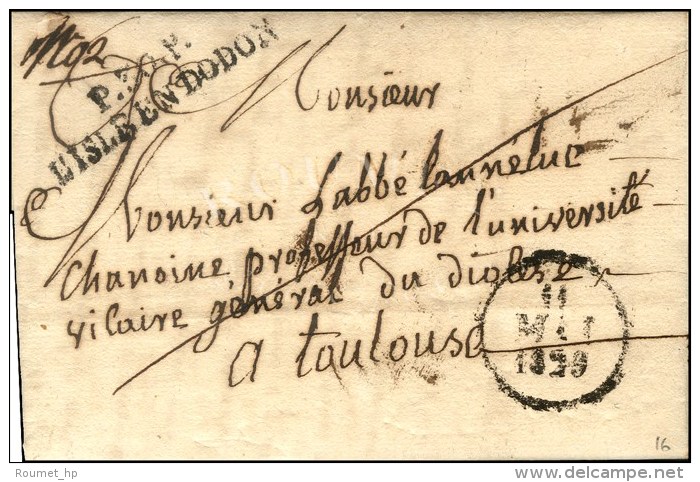 N° 92
P.30.P.
L'ISLE EN DODON
Monsieur
Monsieur Labbé Lannéluc
chanoine professeur de l'université
vicaire général du diolese
a toulouse
11
MAI
1829
16
Roumet_hp
delcampe.net